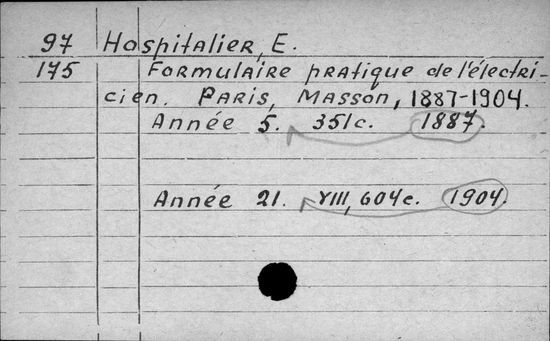 97 Hospitalier, E.
175 Formulaire pratique de l'électri-
cien. Paris, Masson, 1887-1904.
Année 5. 351c. 1887.
Année 21. VIII, 604c. 1904.